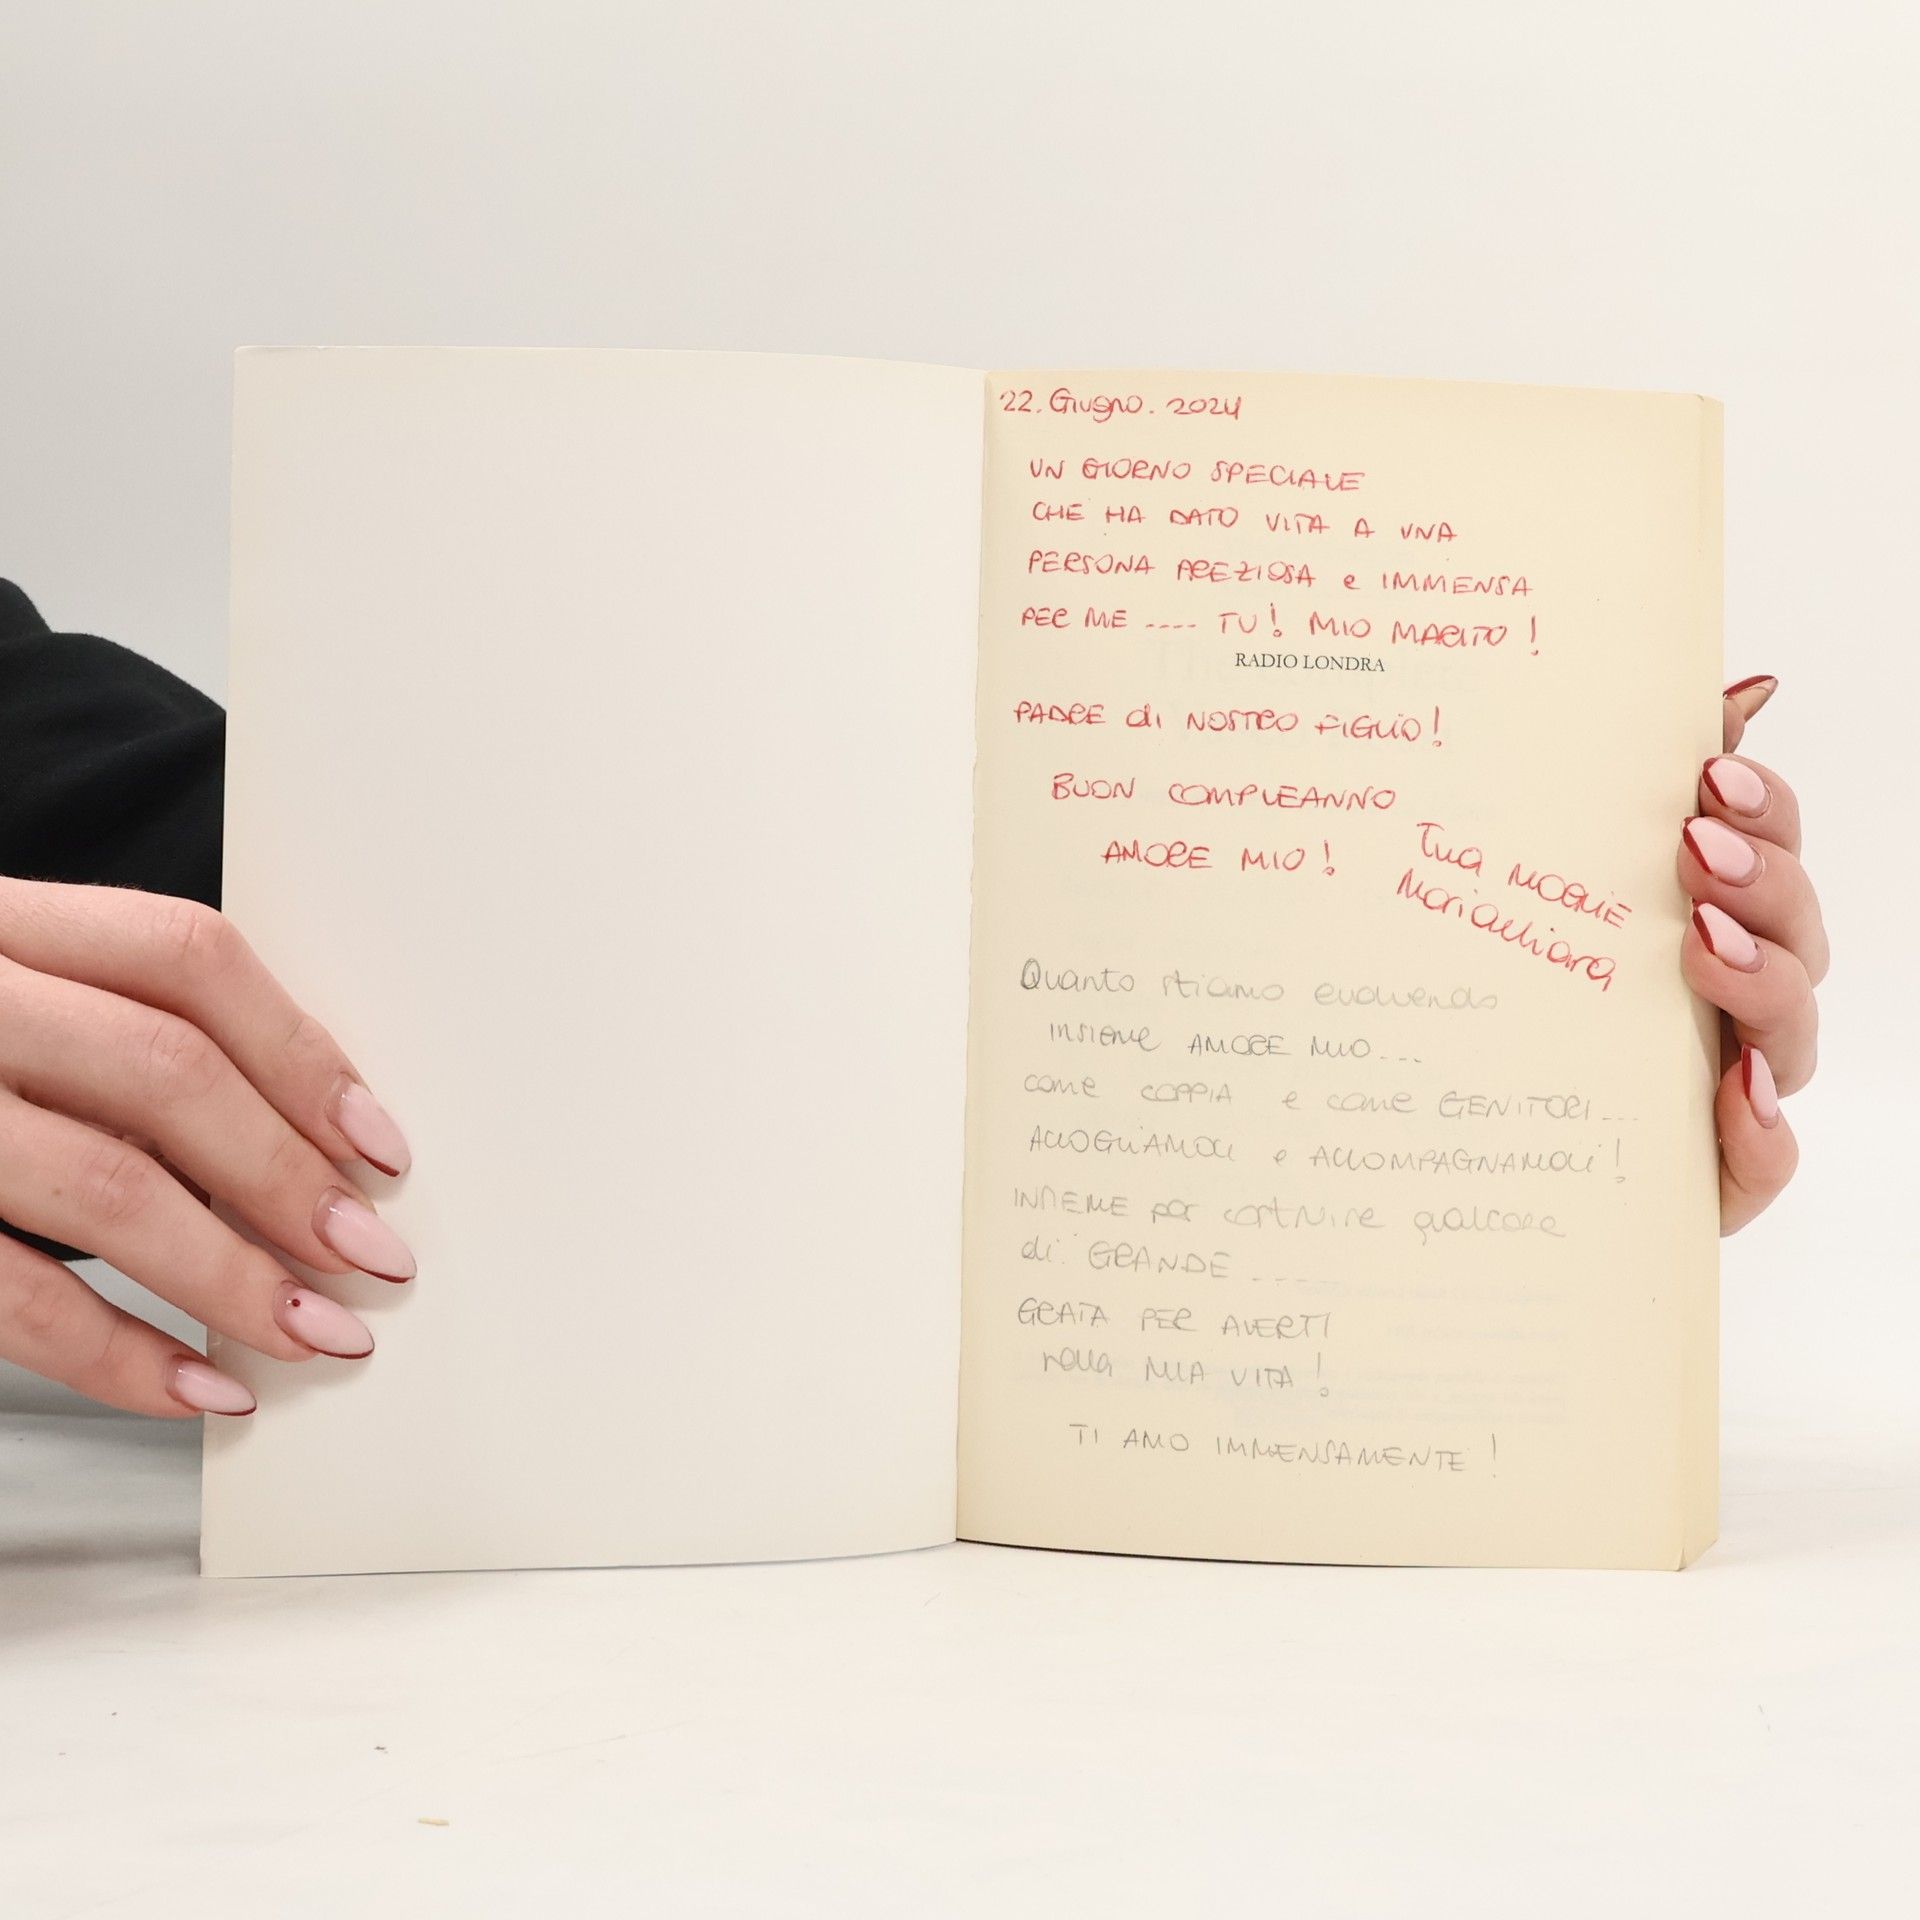 22. Giugno. 2024
UN GIORNO SPECIALE
CHE HA DATO VITA A UNA
PERSONA PREZIOSA e IMMENSA
PER ME ---- TU! MIO MARITO!
RADIO LONDRA
PADRE di NOSTRO FIGLIO!
BUON COMPLEANNO
AMORE MIO!
Tua MOGLIE
Mariachiara
Quanto stiamo evolvendo
INSIEME AMORE MIO...
come COPPIA e come GENITORI...
ACCOGLIAMOCI e ACCOMPAGNAMOCI!
INSIEME per costruire qualcosa
di GRANDE -----
GRATA PER AVERTI
nella MIA VITA!
TI AMO IMMENSAMENTE!